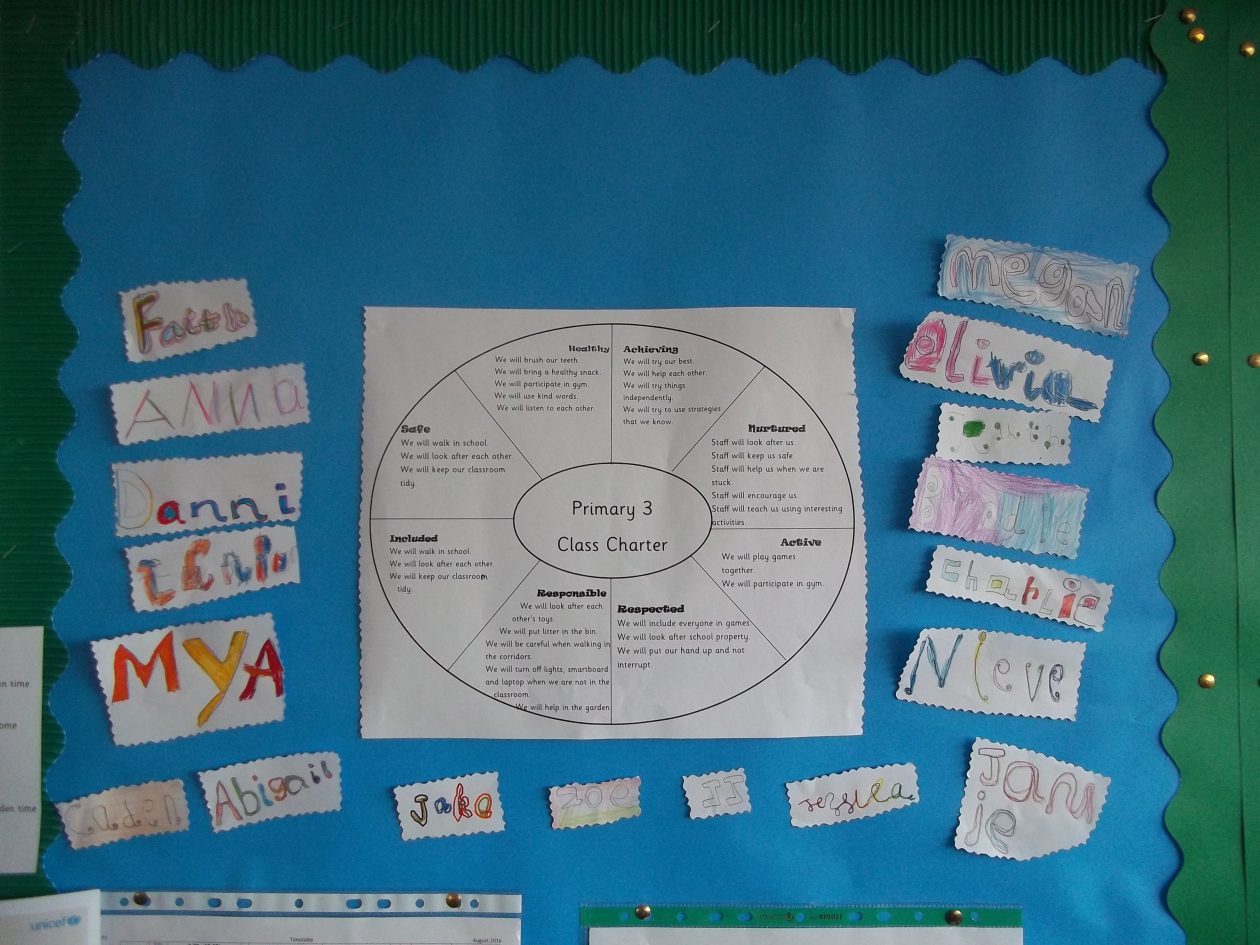 Faith
ANNA
Danni
MYA
Caden
Abigail
Jake
Zoe
JJ
Megan
Olivia
Charlie
Nieve
Jam
ie
Healthy
We will brush our teeth.
We will bring a healthy snack.
We will participate in gym.
We will use kind words.
We will listen to each other.
Achieving
We will try our best.
We will help each other.
We will try things
independently.
We will try to use strategies
that we know.
Safe
We will walk in school.
We will look after each other.
We will keep our classroom
tidy.
Nurtured
Staff will look after us.
Staff will keep us safe.
Staff will help us when we are
stuck.
Staff will encourage us.
Staff will teach us using interesting
activities.
Primary 3
Class Charter
Included
We will walk in school.
We will look after each other.
We will keep our classroom
tidy.
Active
We will play games
together.
We will participate in gym.
Responsible
We will look after each
other's toys
We will put litter in the bin.
We will be careful when walking in
the corridors.
We will turn off lights, smartboard
and laptop when we are not in the
classroom.
We will help in the garden.
Respected
We will include everyone in games.
We will look after school property.
We will put our hand up and not
interrupt.
time
time
unicef
Timetable
August 2016